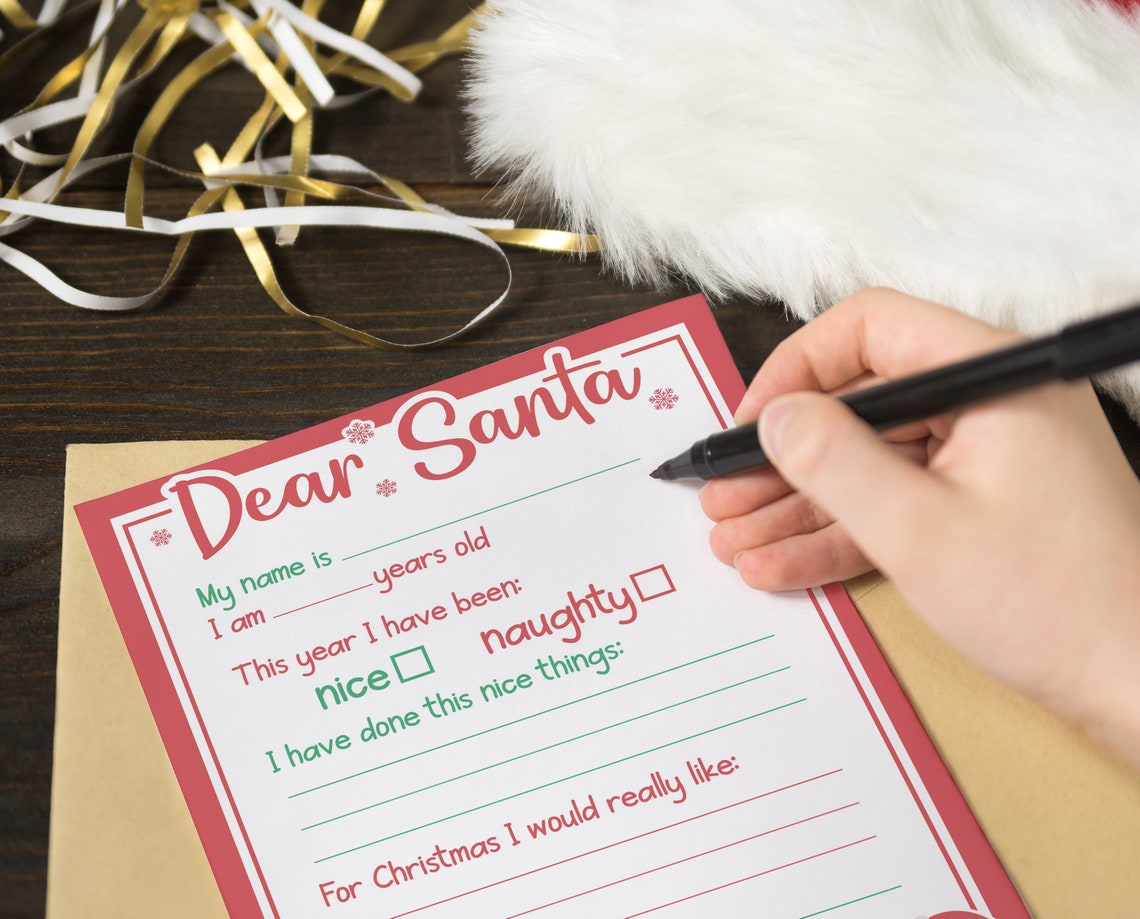 Dear Santa
My name is
I am years old
This year I have been:
nice naughty
I have done this nice things:
For Christmas I would really like: